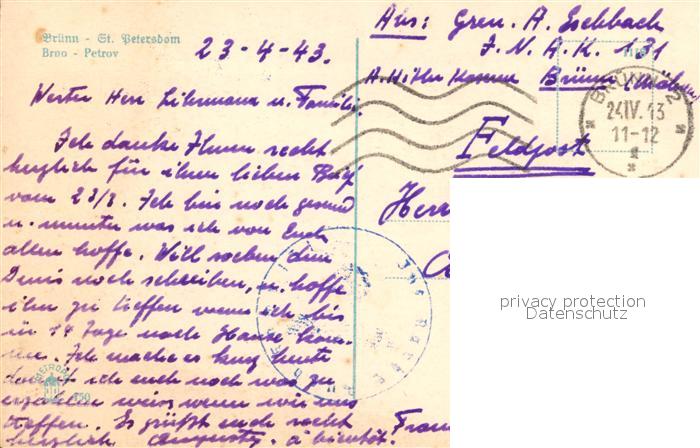 Brünn - St. Petersdom
Brno - Petrov
23-4-43.
Aus: Gren. A. Eschbach
J. N. A. K. 131
A. Hitler Kaserne Brünn
BRÜNN 2
24.IV.43
11-12
Feldpost
Werter Herr u. Familie,
Ich danke Ihnen recht
herzlich für ihren lieben Brief
vom 23/3. Ich bin noch gesund
u. munter was ich von Euch
allen hoffe. Will soeben dem
Denis noch schreiben, u. hoffe
ihn zu treffen wenn ich bis
in 14 Tage nach Hause kom-
me. Ich mache es kurz heute
damit ich euch noch was zu
erzählen weiss wenn wir uns
treffen. Es grüßt euch recht
herzlich à bientôt.
Herr
privacy protection
Datenschutz